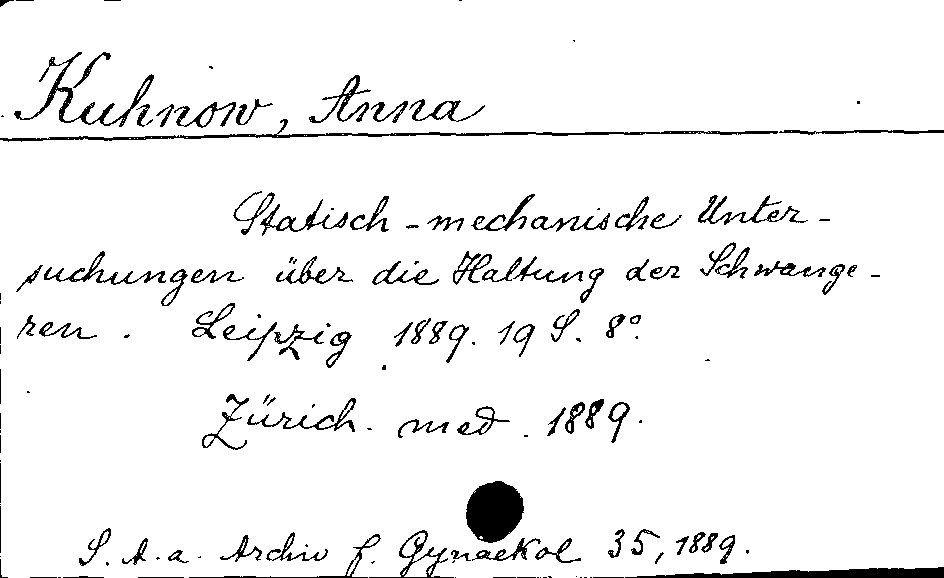 Kuhnow, Anna
Statisch-mechanische Unter-
suchungen über die Haltung der Schwange-
ren. Leipzig 1889. 19 S. 8°.
Zürich. med. 1889.
S. A. a. Archiv f. Gynaekol 35, 1889.